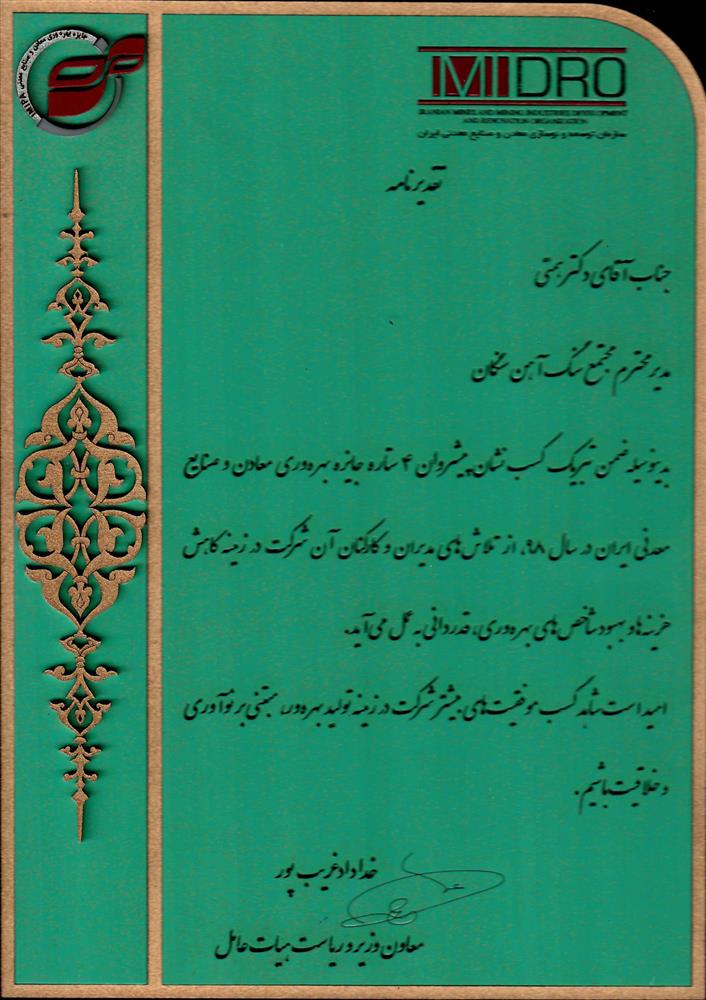 جایزه بهره وری معادن و صنایع معدنی
IMIPA
IMIDRO
IRANIAN MINES AND MINING INDUSTRIES DEVELOPMENT
AND RENOVATION ORGANIZATION
سازمان توسعه و نوسازی معادن و صنایع معدنی ایران
تقدیرنامه
جناب آقای دکتر همتی
مدیر محترم مجتمع سنگ آهن سنگان
بدینوسیله ضمن تبریک کسب نشان پیشروان ۴ ستاره جایزه بهره‌وری معادن و صنایع
معدنی ایران در سال ۹۸، از تلاش‌های مدیران و کارکنان آن شرکت در زمینه کاهش
هزینه‌ها و بهبود شاخص‌های بهره‌وری، قدردانی به عمل می‌آید.
امید است شاهد کسب موفقیت‌های بیشتر شرکت در زمینه تولید بهره‌ور، مبتنی بر نوآوری
و خلاقیت باشیم.
خداداد غریب‌پور
معاون وزیر و ریاست هیات عامل